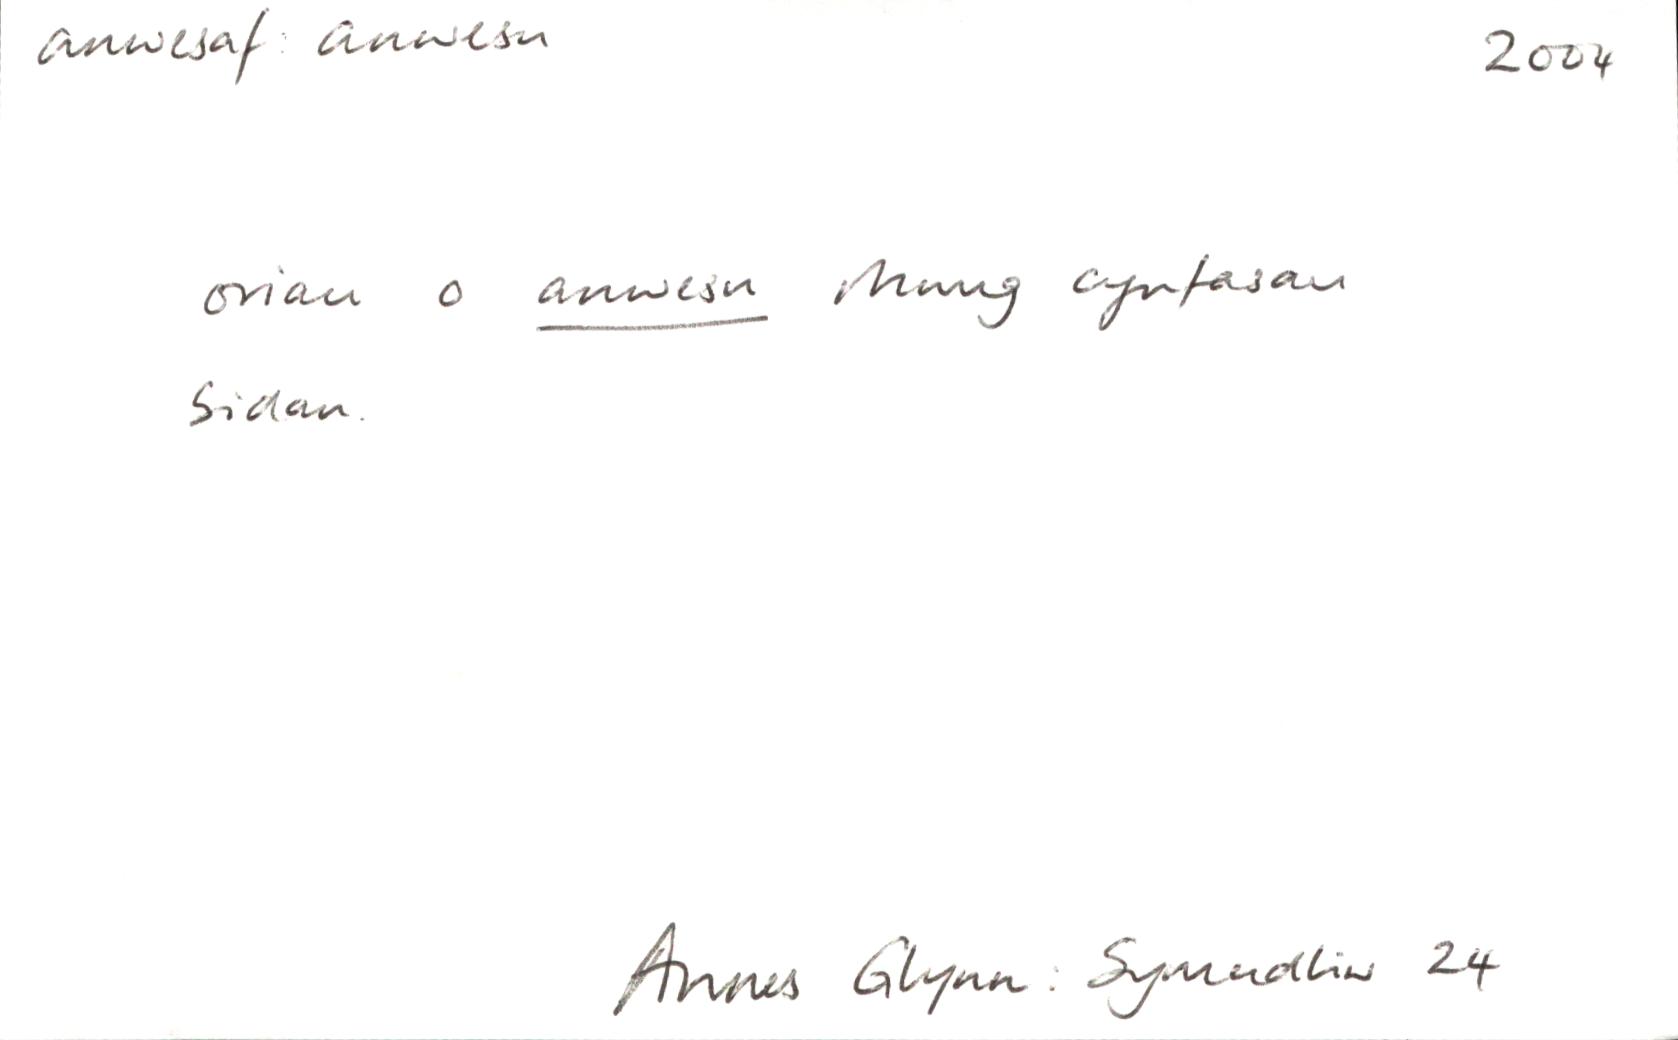 anwesaf: anwesu 2004
oriau o anwesu rhwng cynfasau
sidan.
Annes Glynn: Symudliw 24